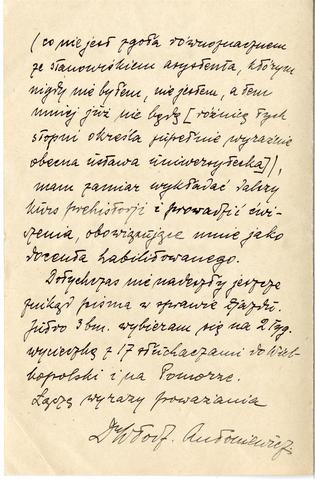 (co nie jest zgoła równoznacznem
ze stanowiskiem asystenta, którym
nigdy nie byłem, nie jestem, a tem
mniej już nie będę [różnicę tych
stopni określa zupełnie wyraźnie
obecna ustawa uniwersytecka]),
mam zamiar wykładać dalszy
kurs prehistorji i prowadzić ćwi-
czenia, obowiązujące mnie jako
docenta habilitowanego.
Dotychczas nie nadeszły jeszcze
znikąd pisma w sprawie Zjazdu.
Jutro 3 bm. wybieram się na 2 tyg.
wycieczkę z 17 słuchaczami do Wiel-
kopolski i na Pomorze.
Łączę wyrazy poważania
Dr Włodz. Antoniewicz